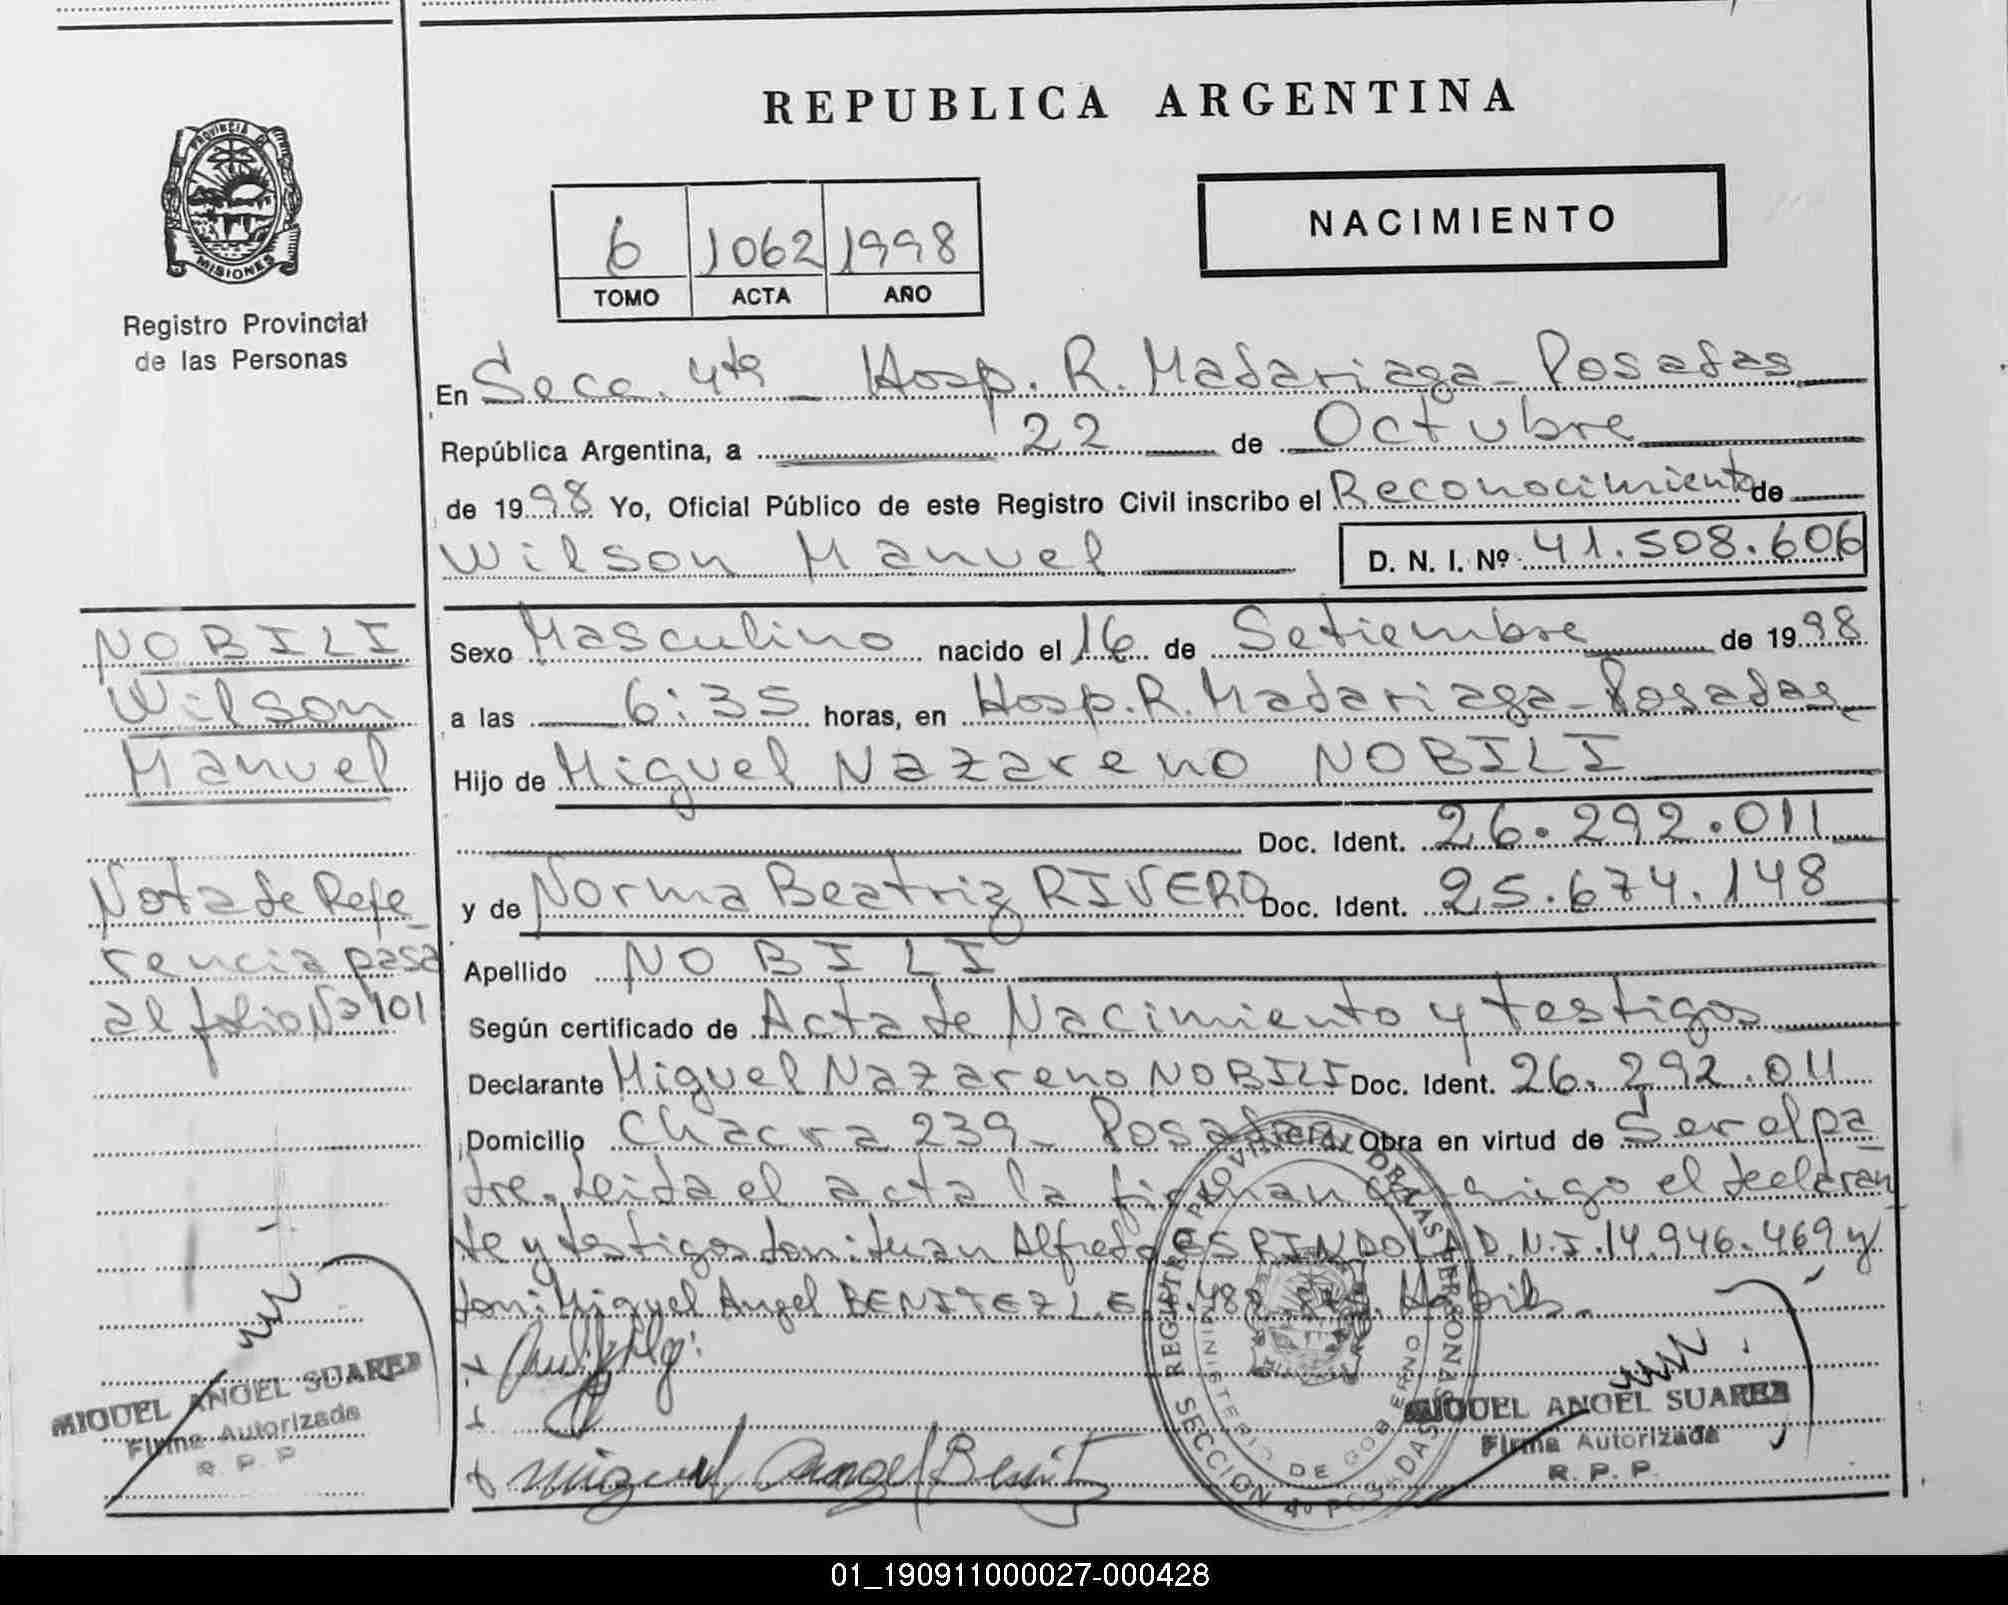 REPUBLICA ARGENTINA
PROVINCIA DE MISIONES
Registro Provincial
de las Personas
6 1062 1998
TOMO ACTA AÑO
NACIMIENTO
En Secc. 4ta Hosp. R. Madariaga - Posadas
República Argentina, a 22 de Octubre
de 1998 Yo, Oficial Público de este Registro Civil inscribo el Reconocimiento de
Wilson Manuel D. N. I. Nº 41.508.606
NOBILI
Wilson
Manuel
Sexo Masculino nacido el 16 de Setiembre de 1998
a las 6:35 horas, en Hosp. R. Madariaga - Posadas
Hijo de Miguel Nazareno NOBILI
Doc. Ident. 26.292.011
y de Norma Beatriz RIVERO Doc. Ident. 25.674.148
Nota de Refe
rencia pasa
al folio Nº 101
Apellido NOBILI
Según certificado de Acta de Nacimiento y testigos
Declarante Miguel Nazareno NOBILI Doc. Ident. 26.292.011
Domicilio Chacra 239 - Posadas Obra en virtud de Ser el pa
dre. Leida el acta la firman conmigo el declaran
te y testigos don: Juan Alfredo ESPINDOLA D.N.I. 14.946.469 y
don: Miguel Angel BENITEZ L.E.
Miguel Angel Benit
REGISTRO PROVINCIAL DE LAS PERSONAS
MINISTERIO DE GOBIERNO
SECCION 4º POSADAS
MIGUEL ANGEL SUAREZ
Firma Autorizada
R. P. P.
MIGUEL ANGEL SUAREZ
Firma Autorizada
R. P. P.
01_190911000027-000428